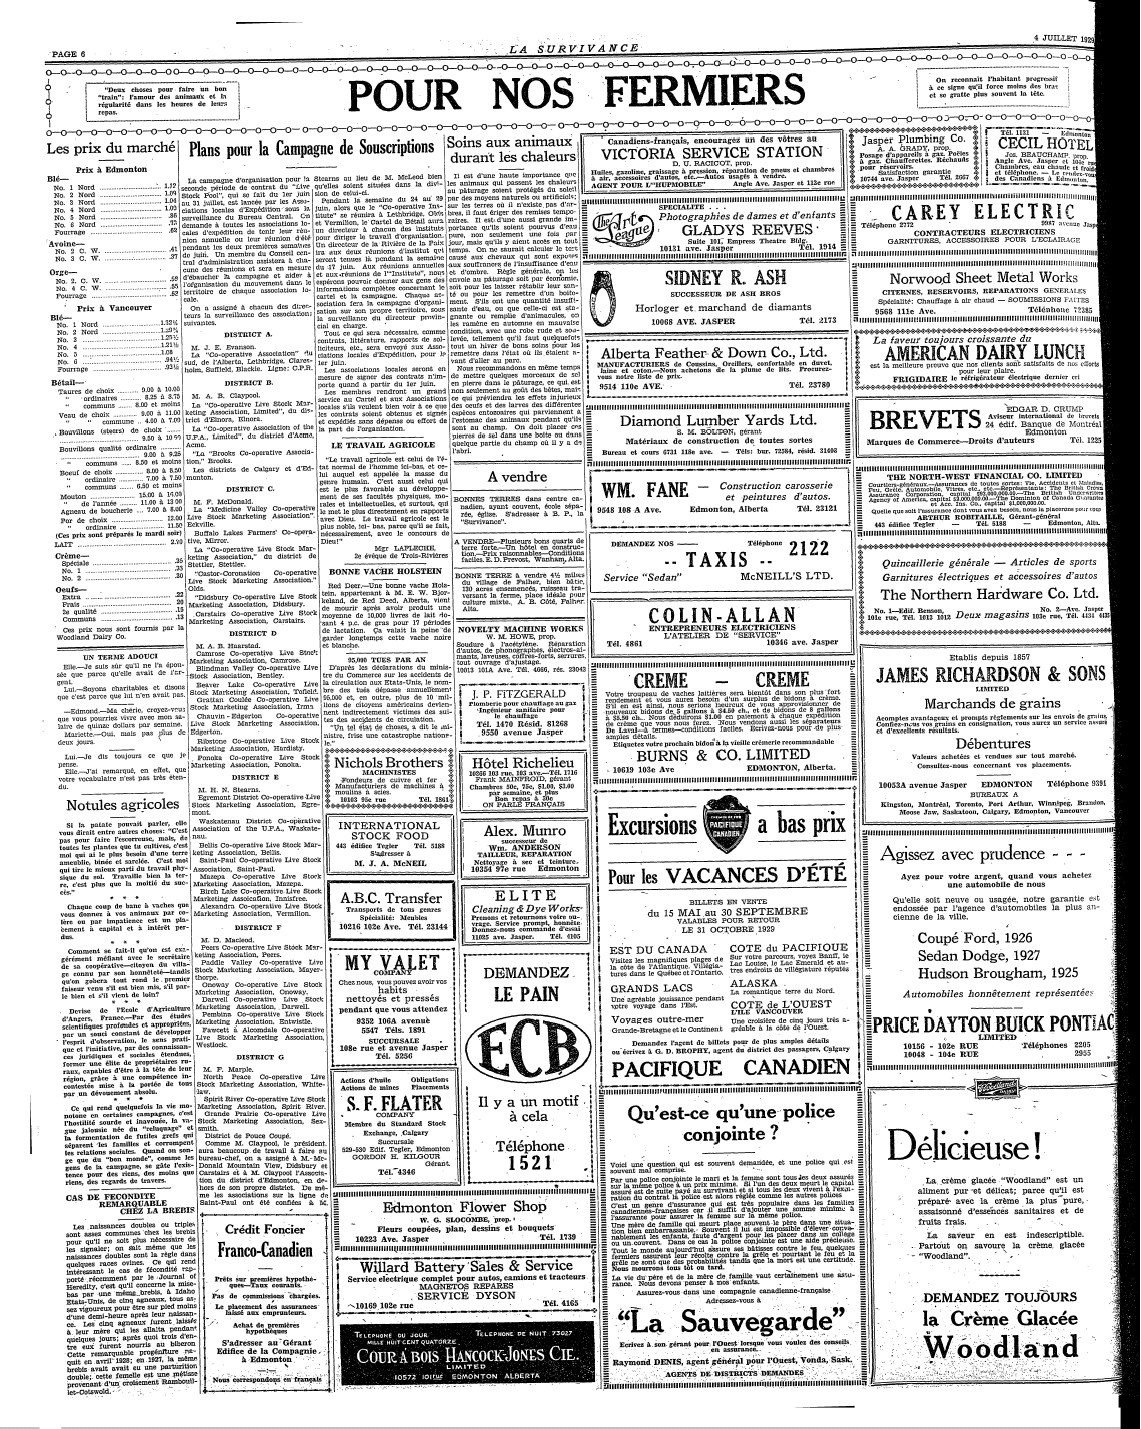 PAGE 6
LA SURVIVANCE
4 JUILLET 1929
"Deux choses pour faire un bon
"train": l'amour des animaux et la
régularité dans les heures de leurs
repas.
POUR NOS FERMIERS
On reconnaît l'habitant progressif
à ce signe qu'il force moins des bras
et se gratte plus souvent la tête.
Les prix du marché
Prix à Edmonton
Blé—
No. 1 Nord
No. 2 Nord
No. 3 Nord
No. 4 Nord
No. 5 Nord
No. 6 Nord
Fourrage
Avoine—
No. 2 C. W.
No. 3 C. W.
Orge—
No. 2. C. W.
No. 4 C. W.
Fourrage
Prix à Vancouver
Blé—
No. 1 Nord
No. 2 Nord
No. 3
No. 4
No. 5
No. 6
Fourrage
Bétail—
Taures de choix 9.00 à 10.00
" ordinaires 8.25 à 8.75
" communs 8.00 et moins
Veau de choix 9.00 à 11.00
" communs 4.00 à 7.00
Bouvillons (steers) de choix
Bouvillons qualité ordinaire
9.00 à 9.25
" communs 8.50 et moins
Boeuf de choix 8.00 à 8.50
" ordinaire 7.00 à 7.50
" communs 6.50 et moins
Mouton 15.00 à 14.00
" de l'année 11.00 à 13.00
Agneau de boucherie 7.00 à 8.00
Porc de choix 12.00
" ordinaire 11.50
(Ces prix sont préparés le mardi soir)
LAIT 2.10
Crème—
Spéciale
No. 1
No. 2
Oeufs—
Extra
Frais
2e qualité
Communs
Ces prix nous sont fournis par la
Woodland Dairy Co.
UN TERME ADOUCI
Elle.—Je suis sûr qu'il ne l'a épou-
sée que parce qu'elle avait de l'ar-
gent.
Lui.—Soyons charitables et disons
que c'est parce que lui n'en avait pas.
—Edmond.—Ma chérie, croyez-vous
que vous pourriez vivre avec mon sa-
laire de quinze dollars par semaine.
Mariette.—Oui, mais pas plus de
deux jours.
Lui.—Je dis toujours ce que je
pense.
Elle.—J'ai remarqué, en effet, que
votre vocabulaire n'est pas très éten-
du.
Notules agricoles
Si la patate pouvait parler, elle
vous dirait entre autres choses: "C'est
pas pour faire l'écornreuse, mais, de
toutes les plantes que tu cultives, c'est
moi qui ai le plus besoin d'une terre
ameublie, binée et sarclée. C'est moi
qui tire le mieux parti du travail phy-
sique du sol. Travaille bien la ter-
re, c'est plus que la moitié du suc-
cès."
* * *
Chaque coup de banc à vaches que
vous donnez à vos animaux par co-
lère ou par impatience est un pla-
cement à capital et à intérêt per-
dus.
* * *
Comment se fait-il qu'on est exa-
gérément méfiant avec le secrétaire
de sa coopérative—citoyen du villa-
ge connu par son honnêteté—tandis
qu'on gobera tout rond le premier
faiseur venu s'il est bien mis, s'il par-
le bien et s'il vient de loin?
* * *
Devise de l'Ecole d'Agriculture
d'Angers, France.—Par des études
scientifiques profondes et appropriées,
par un souci constant de développer
l'esprit d'observation, le sens prati-
que et l'initiative, par des connaissan-
ces juridiques et sociales étendues,
former une élite de propriétaires ru-
raux, capables d'être à la tête de leur
région, grâce à une compétence in-
contestée mise à la portée de tous
par un dévouement absolu.
* * *
Ce qui rend quelquefois la vie mo-
notone en certaines campagnes, c'est
l'hostilité sourde et inavouée, la va-
gue jalousie née du "reluquage" et
la formation de futiles grefs qui
séparent les familles et corrompent
les relations sociales. Quand on son-
ge que du "bon monde", comme les
gens de la campagne, se gâte l'exis-
tence pour des riens, des moins que
riens, des regards de travers.
CAS DE FECONDITE
REMARQUABLE
CHEZ LA BREBIS
Les naissances doubles ou triples
sont assez communes chez les brebis
pour qu'il ne soit plus nécessaire de
les signaler; on sait même que les
naissances doubles sont la règle dans
quelques races ovines. Ce qui rend
intéressant le cas de fécondité rap-
porté récemment par le Journal of
Heredity, c'est qu'il concerne la mise-
bas par une même brebis, à Idaho
Etats-Unis, de cinq agneaux, tous as-
sez vigoureux pour être sur pied moins
d'une demi-heure après leur naissan-
ce. Les cinq agneaux furent laissés
à leur mère qui les allaita pendant
quelques jours; après quoi trois d'en-
tre eux furent nourris au biberon
Cette remarquable progéniture na-
quit en avril 1928; en 1927, la même
brebis avait avait eu une parturition
double; cette femelle est une métisse
provenant d'un croisement Rambouil-
let-Cotswold.
Plans pour la Campagne de Souscriptions
La campagne d'organisation pour la
seconde période de contrat du "Live
Stock Pool", qui se fait du 1er juin
au 31 juillet, est lancée par les Asso-
ciations locales d'Expédition sous la
surveillance du Bureau Central. On
demande à toutes les associations lo-
cales d'expédition de tenir leur réu-
nion annuelle ou leur réunion d'été
pendant les deux premières semaines
de juin. Un membre du Conseil cen-
tral d'administration assistera à cha-
cune des réunions et sera en mesure
d'ébaucher la campagne et aider à
l'organisation du mouvement dans le
territoire de chaque association lo-
cale.
On a assigné à chacun des direc-
teurs la surveillance des associations
suivantes.
DISTRICT A.
M. J. E. Evanson.
La "Co-operative Association" du
sud, de l'Alberta, Lethbridge, Clares-
holm, Suffield, Blackie. Ligne: C.P.R.
DISTRICT B.
M. A. B. Claypool.
La "Co-operative Live Stock Mar-
keting Association, Limited", du dis-
trict d'Elnora, Elnora.
La "Co-operative Association of the
U.P.A., Limited", du district d'Acme,
Acme.
La "Brooks Co-operative Associa-
tion," Brooks.
Les districts de Calgary et d'Ed-
monton.
DISTRICT C.
M. F. McDonald.
La "Medicine Valley Co-operative
Live Stock Marketing Association"
Eckville.
Buffalo Lakes Farmers' Co-opera-
tive, Mirror.
La "Co-operative Live Stock Mar-
keting Association," du district de
Stettler, Stettler.
"Castor-Coronation Co-operative
Live Stock Marketing Association."
Olds.
"Didsbury Co-operative Live Stock
Marketing Association, Didsbury.
Carstairs Co-operative Live Stock
Marketing Association, Carstairs.
DISTRICT D
M. A. B. Haarstad.
Camrose Co-operative Live Stock
Marketing Association, Camrose.
Blindman Valley Co-operative Live
Stock Marketing Association, Bentley.
Beaver Lake Co-operative Live
Stock Marketing Association, Tofield.
Grattan Coulée Co-operative Live
Stock Marketing Association, Irma.
Chauvin-Edgerton Co-operative
Live Stock Marketing Association,
Edgerton.
Ribstone Co-operative Live Stock
Marketing Association, Hardisty.
Ponoka Co-operative Live Stock
Marketing Association, Ponoka.
DISTRICT E
M. H. N. Stearns.
Egremont District Co-operative Live
Stock Marketing Association, Egre-
mont.
Waskatenau District Co-operative
Association of the U.P.A., Waskate-
nau.
Bellis Co-operative Live Stock Mar-
keting Association, Bellis.
Saint-Paul Co-operative Live Stock
Association, Saint-Paul.
Mazepa Co-operative Live Stock
Marketing Association, Mazepa.
Birch Lake Co-operative Live Stock
Marketing Association, Innisfree.
Alexandra Co-operative Live Stock
Marketing Association, Vermilion.
DISTRICT F
M. D. Macleod.
Peers Co-operative Live Stock Mar-
keting Association, Peers.
Paddle Valley Co-operative Live
Stock Marketing Association, Mayer-
thorpe.
Onoway Co-operative Live Stock
Marketing Association, Onoway.
Darwell Co-operative Live Stock
Marketing Association, Darwell.
Pembina Co-operative Live Stock
Marketing Association, Entwistle.
Fawcett à Alcomdale Co-operative
Live Stock Marketing Association,
Westlock.
DISTRICT G
M. F. Marple.
North Peace Co-operative Live
Stock Marketing Association, White-
law.
Spirit River Co-operative Live Stock
Marketing Association, Spirit River.
Grande Prairie Co-operative Live
Stock Marketing Association, Sex-
smith.
District de Pouce Coupé.
Comme M. Claypool, le président,
aura beaucoup de travail à faire au
bureau-chef, on a assigné à M. Mc-
Donald Mountain View, Didsbury et
Carstairs et à M. Claypool l'Associa-
tion du district d'Edmonton, en de-
hors de son propre district. De mê-
me les associations sur la ligne de
Saint-Paul ont été confiées à M.
Stearns au lieu de M. McLeod bien
qu'elles soient situées dans la divi-
sion de celui-ci.
Pendant la semaine du 24 au 29
juin, alors que le "Co-operative Ins-
titute" se réunira à Lethbridge, Olds
et Vermilion, le Cartel de Bétail aura
un directeur à chacun des instituts
pour diriger le travail d'organisation.
Un directeur de la Rivière de la Paix
ira aux deux réunions d'institut qui
seront tenues là pendant la semaine
du 17 juin. Aux réunions annuelles
et aux réunions de l'"Institute", nous
espérons pouvoir donner des gens des
informations complètes concernant le
cartel et la campagne. Chaque as-
sociation fera la campagne d'organi-
sation sur son propre territoire, sous
la surveillance du directeur provin-
cial en charge.
Tout ce qui sera nécessaire, comme
contrats, littérature, rapports de sol-
liciteurs, etc., sera envoyé aux Asso-
ciations locales d'Expédition, pour le
1er juin.
Les associations locales seront en
mesure de signer des contrats n'im-
porte quand à partir du 1er juin.
Les membres rendront un grand
service au Cartel et aux Associations
locales s'ils veulent bien voir à ce que
les contrats soient obtenus et signés
et expédiés sans dépense ou effort de
la part de l'organisation.
LE TRAVAIL AGRICOLE
"Le travail agricole est celui de l'é-
tat normal de l'homme ici-bas, et ce-
lui auquel est appelée la masse du
genre humain. C'est aussi celui qui
est le plus favorable au développe-
ment de ses facultés physiques, mo-
rales et intellectuelles, et surtout, qui
le met le plus directement en rapports
avec Dieu. Le travail agricole est le
plus noble, ici- bas, parce qu'il se fait,
nécessairement, avec le concours de
Dieu!"
Mgr LAFLECHE.
2e évêque de Trois-Rivières
BONNE VACHE HOLSTEIN
Red Deer.—Une bonne vache Hols-
tein, appartenant à M. E. W. Bjor-
keland, de Red Deed, Alberta, vient
de mourir après avoir produit une
moyenne de 10,000 livres de lait do-
sant 4 p.c. de gras pour 17 périodes
de lactation. Ca valait la peine de
garder longtemps cette vache noire
et blanche.
95,000 TUES PAR AN
D'après les déclarations du minis-
tre du Commerce sur les accidents de
la circulation aux Etats-Unis, le nom-
bre des tués dépasse annuellement
95,000 et, en outre, plus de 10 mil-
lions de citoyens américains devien-
nent indirectement victimes des sui-
tes des accidents de circulation.
"Un tel état de choses, a dit le mi-
nistre, frise une catastrophe nationa-
le."
Soins aux animaux
durant les chaleurs
Il est d'une haute importance que
les animaux qui passent les chaleurs
au pâturage soient protégés du soleil
par des moyens naturels ou artificiels;
s'il n'y a pas d'abri naturel d'ar-
bres, il faut ériger des remises tempo-
raires. Il est d'une aussi grande im-
portance qu'ils soient pourvus d'eau
pure, non seulement une fois par
jour, mais qu'ils y aient accès en tout
temps. On ne saurait calculer le tort
causé aux chevaux qui sont exposés
aux souffrances de l'insuffisance d'eau
et d'ombre. Règle générale, on les
envoie au pâturage dans cette saison
soit pour les laisser rétablir leur san-
té ou pour les remettre d'un boite-
ment. S'ils ont une quantité insuffi-
sante d'eau, ou que celle-ci est sta-
gnante ou remplie d'animalcules, on
les ramène en automne en mauvaise
condition, avec une robe rude et sou-
levée, tellement qu'il faut quelquefois
tout un hiver de bons soins pour les
remettre dans l'état où ils étaient a-
vant d'aller au parc.
Nous recommandons en même temps
de mettre quelques morceaux de sel
en pierre dans le pâturage, ce qui est
non seulement au goût des bêtes, mais
ce qui préviendra les effets injurieux
des oeufs et des larves des différentes
espèces entozoaires qui parviennent à
l'estomac des animaux pendant qu'ils
sont au champ. On doit placer ces
pierres de sel dans une boîte ou dans
quelque partie du champ où il y a de
l'abri.
A vendre
BONNES TERRES dans centre ca-
nadien, ayant couvent, école sépa-
rée, église. S'adresser à B. P., la
"Survivance".
A VENDRE—Plusieurs bons quarts de
terre forte.—Un hôtel en construc-
tion.—Prix raisonnables—Conditions
faciles. E. D. Prevost, Wanham, Alta.
BONNE TERRE à vendre 4½ milles
du village de Falher, bien bâtie,
130 acres ensemencés, ruisseau tra-
versant la ferme, place idéale pour
culture mixte. A. B. Côté, Falher,
Alta.
NOVELTY MACHINE WORKS
W. M. HOWE, prop.
Soudure à l'acétylène. Réparation
d'autos, de phonographes, électros-ai-
mants, laveuses, coffres-forts, serrures,
tout ouvrage d'ajustage.
10013 101A Ave. Tél. 4666, rés. 23043
J. P. FITZGERALD
Plomberie pour chauffage au gaz
"Ingénieur sanitaire pour
le chauffage
Tél. 1470 Résid. 81268
9550 avenue Jasper
Nichols Brothers
MACHINISTES
Fondeurs de cuivre et fer
Manufacturiers de machines à
moulins à scies.
10103 95e rue Tél. 1861
Hôtel Richelieu
10266 103 rue, 103 ave.—Tél. 1716
Frank MAINFROID, gérant
Chambres 50c, 75c, $1.00, $3.00
par semaine, et plus
Bon repas à 50c
ON PARLE FRANÇAIS
INTERNATIONAL
STOCK FOOD
443 édifice Tegler Tél. 5188
S'adresser à
M. J. A. McNEIL
Alex. Munro
successeur de
Wm. ANDERSON
TAILLEUR, REPARATION
Nettoyage à sec et teinture.
10354 97e rue Edmonton
A.B.C. Transfer
Transports de tous genres
Spécialité: Meubles
10216 102e Ave. Tél. 23144
ELITE
Cleaning & Dye Works
Prenons et retournons votre ou-
vrage. Service prompt, honnête.
Donnez-nous commande d'essai
11025 ave. Jasper. Tél. 4105
MY VALET
COMPANY
Chez nous, vous pouvez avoir vos
habits
nettoyés et pressés
pendant que vous attendez
9352 106A avenue
5547 Téls. 1891
SUCCURSALE
108e rue et avenue Jasper
Tél. 5256
DEMANDEZ
LE PAIN
ECB
Il y a un motif
à cela
Téléphone
1521
Actions d'huile Obligations
Actions de mines Placements
S. F. FLATER
COMPANY
Membre du Standard Stock
Exchange, Calgary
Succursale
529-530 Edif. Tegler, Edmonton
GORDON H. KILGOUR
Gérant.
Tél. 4346
Crédit Foncier
Franco-Canadien
Prêts sur premières hypothè-
ques—Taux courants.
Pas de commissions chargées.
Le placement des assurances
laissé aux emprunteurs.
Achat de premières
hypothèques
S'adresser au Gérant
Edifice de la Compagnie
à Edmonton
Nous correspondons en français
Edmonton Flower Shop
W. G. SLOCOMBE, prop.
Fleurs coupées, plan, dessins et bouquets
10223 Ave. Jasper Tél. 1739
Willard Battery Sales & Service
Service électrique complet pour autos, camions et tracteurs
MAGNETOS REPARES
SERVICE DYSON
10169 102e rue Tél. 4165
TELEPHONE DU JOUR TELEPHONE DE NUIT 73027
MILLE HUIT CENT QUATORZE
COUR A BOIS HANCOCK-JONES CIE.
LIMITED
10572 101RUE EDMONTON ALBERTA
Canadiens-français, encouragez un des vôtres au
VICTORIA SERVICE STATION
D. U. RACICOT, prop.
Huiles, gazoline, graissage à pression, réparation de pneus et chambres
à air, accessoires d'autos, etc.—Autos usagés à vendre.
AGENT POUR L'"HUPMOBILE" Angle Ave. Jasper et 113e rue
SPECIALITE . . .
The Art League
Photographies de dames et d'enfants
GLADYS REEVES
Suite 101, Empress Theatre Bldg.
10131 ave. Jasper Tél. 1914
SIDNEY R. ASH
SUCCESSEUR DE ASH BROS
Horloger et marchand de diamants
10068 AVE. JASPER Tél. 2173
Alberta Feather & Down Co., Ltd.
MANUFACTURIERS de Coussins, Oreillers, confortable en duvet,
laine et coton.—Nous achetons de la plume de lits. Procurez-
vous notre liste de prix.
9514 110e AVE. Tél. 23789
Diamond Lumber Yards Ltd.
S. M. BOLTON, gérant
Matériaux de construction de toutes sortes
Bureau et cours 6731 118e ave. — Téls: bur. 72584, résid. 31408
WM. FANE — Construction carosserie
et peintures d'autos.
9548 108 A Ave. Edmonton, Alberta Tél. 23121
DEMANDEZ NOS —— Téléphone 2122
-- TAXIS --
Service "Sedan" McNEILL'S LTD.
COLIN-ALLAN
ENTREPRENEURS ELECTRICIENS
L'ATELIER DE "SERVICE"
Tél. 4861 10346 ave. Jasper
CREME — CREME
Votre troupeau de vaches laitières sera bientôt dans son plus fort
rendement et vous aurez besoin d'un surplus de bidons à crème.
S'il en est ainsi, nous serions heureux de vous approvisionner de
nouveaux bidons de 5 gallons à $4.50 ch. et de bidons de 8 gallons
à $5.50 ch.. Nous déduirons $1.00 en paiement à chaque expédition
de crème que vous ferez. Nous vendons aussi les séparateurs
De Laval—à termes—conditions faciles. Ecrivez-nous pour de plus
amples détails.
Etiquetez votre prochain bidon à la vieille crèmerie recommandable
BURNS & CO. LIMITED
10619 103e Ave EDMONTON, Alberta.
Excursions PACIFIQUE CANADIEN a bas prix
Pour les VACANCES D'ÉTÉ
BILLETS EN VENTE
du 15 MAI au 30 SEPTEMBRE
VALABLES POUR RETOUR
LE 31 OCTOBRE 1929
EST DU CANADA
Visites les magnifiques plages de
la côte de l'Atlantique. Villégia-
tures dans le Québec et l'Ontario.
GRANDS LACS
Une agréable jouissance pendant
votre voyage dans l'Est.
Voyages outre-mer
Grande-Bretagne et le Continent
COTE du PACIFIQUE
Sur votre parcours, voyez Banff, le
Lac Louise, le Lac Emerald et au-
tres endroits de villégiature réputés
ALASKA
La romantique terre du Nord.
COTE de L'OUEST
L'ILE VANCOUVER
Une croisière de cinq jours très a-
gréable à la côte de l'Ouest.
Demandez l'agent de billets pour de plus amples détails
ou écrivez à G. D. BROPHY, agent du district des passagers, Calgary
PACIFIQUE CANADIEN
Qu'est-ce qu'une police
conjointe ?
Voici une question qui est souvent demandée, et une police qui est
souvent mal comprise.
Par une police conjointe le mari et la femme sont tous les deux assurés
sur la même police à un prix minime. Si l'un des deux meurt le capital
assuré est de suite payé au survivant et si tous les deux vivent à l'expi-
ration du contrat la police est alors réglée comme les autres polices.
C'est un genre d'assurance qui est très populaire dans les familles
canadiennes-françaises car il suffit d'ajouter une somme minime à
l'assurance pour assurer la femme sur la même police.
Une mère de famille qui meurt place souvent le père dans une situa-
tion bien embarrassante. Souvent il lui est impossible d'élever conve-
nablement les enfants, faute d'argent pour les placer dans un collège
ou un couvent. Dans ce cas la police conjointe est une aide précieuse.
Tout le monde aujourd'hui assure ses bâtisses contre le feu, quelques
fermiers assurent leur récolte contre la grêle et pourtant le feu et la
grêle ne sont que des probabilités tandis que la mort est une certitude.
Nous mourrons tous tôt ou tard.
La vie du père et de la mère de famille vaut certainement une assu-
rance. Nous devons penser à nos enfants.
Assurez-vous dans une compagnie canadienne-française
Adressez-vous à
"La Sauvegarde"
Ecrivez à son gérant pour l'Ouest lorsque vous voulez des conseils
en assurance.
Raymond DENIS, agent général pour l'Ouest, Vonda, Sask.
AGENTS DE DISTRICTS DEMANDES
Jasper Plumbing Co.
A. A. GRADY, prop.
Posage d'appareils à gaz. Poêles
à gaz. Chaufferettes. Réchauds
pour réservoirs.
Satisfaction garantie
10744 ave. Jasper Tél. 2667
Tél. 1131 Edmonton
CECIL HOTEL
Jos. BEAUCHAMP, prop.
Angle Ave. Jasper et 104e rue
Chambres, eau chaude et froide
et téléphone. — Le rendez-vous
des Canadiens à Edmonton.
CAREY ELECTRIC
Téléphone 2772 avenue Jasper
CONTRACTEURS ELECTRICIENS
GARNITURES, ACCESSOIRES POUR L'ECLAIRAGE
Norwood Sheet Metal Works
CITERNES, RESERVOIRS, REPARATIONS GENERALES
Spécialité: Chauffage à air chaud — SOUMISSIONS FAITES
9568 111e Ave. Téléphone 72285
La faveur toujours croissante du
AMERICAN DAIRY LUNCH
est la meilleure preuve que nos clients sont satisfaits de nos efforts
pour leur plaire.
FRIGIDAIRE le réfrigérateur électrique dernier cri
BREVETS
EDGAR D. CRUMP
Aviseur international de brevets
24 édif. Banque de Montréal
Edmonton
Marques de Commerce—Droits d'auteurs Tél. 1225
THE NORTH-WEST FINANCIAL CO. LIMITED
Courtiers-généraux.—Assurances de toutes sortes: Vie, Accidents et Maladie,
Feu, Grêle, Autos, Vitres, etc., etc.—Représentants: The British Crown
Assurance Corporation, capital $92,000,000.00.—The British Underwriters
Agency of America, capital $3,000,000.00.—The Dominion of Canada Guarantee
et Acc. Ins. Co.
Quelle que soit l'assurance dont vous avez besoin, nous la placerons pour vous
ARTHUR ROBITAILLE, Gérant-général
443 édifice Tegler — Tél. 5188 — Edmonton, Alta.
Quincaillerie générale — Articles de sports
Garnitures électriques et accessoires d'autos
The Northern Hardware Co. Ltd.
No. 1—Edif. Benson,
101e rue, Tél. 1013 1012
Deux magasins
No. 2—Ave. Jasper
103e rue, Tél. 4431
Etablis depuis 1857
JAMES RICHARDSON & SONS
LIMITED
Marchands de grains
Acomptes avantageux et prompts règlements sur les envois de grains,
Confiez-nous vos grains en consignation, vous aurez un service assuré
et d'excellents résultats.
Débentures
Valeurs achetées et vendues sur tout marché.
Consultez-nous concernant vos placements.
10053A avenue Jasper EDMONTON Téléphone 9391
BUREAUX A
Kingston, Montréal, Toronto, Port Arthur, Winnipeg, Brandon,
Moose Jaw, Saskatoon, Calgary, Edmonton, Vancouver
Agissez avec prudence - - -
Ayez pour votre argent, quand vous achetez
une automobile de nous
Qu'elle soit neuve ou usagée, notre garantie est
endossée par l'agence d'automobiles la plus an-
cienne de la ville.
Coupé Ford, 1926
Sedan Dodge, 1927
Hudson Brougham, 1925
Automobiles honnêtement représentées
PRICE DAYTON BUICK PONTIAC
LIMITED
10156 - 102e RUE Téléphones 2205
10048 - 104e RUE 2955
Woodland
Délicieuse!
La crème glacée "Woodland" est un
aliment pur et délicat; parce qu'il est
préparé avec la crème la plus pure,
assaisonné d'essences sanitaires et de
fruits frais.
La saveur en est indescriptible.
Partout on savoure la crème glacée
"Woodland".
DEMANDEZ TOUJOURS
la Crème Glacée
Woodland